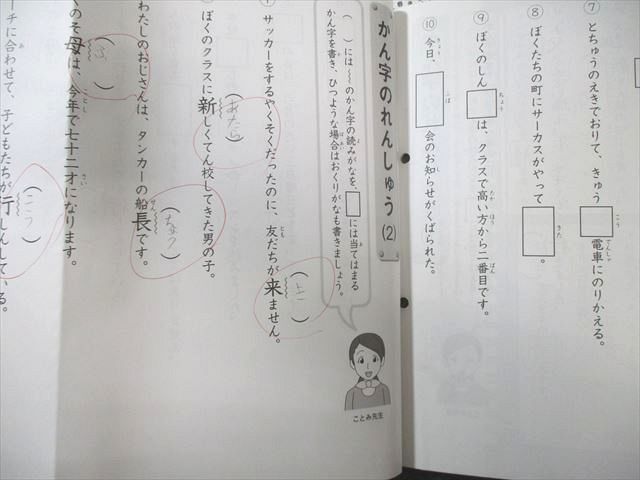 ⑦ とちゅうのえきでおりて、きゅう□電車にのりかえる。
こう
でんしゃ
⑧ ぼくたちの町にサーカスがやって□。
きた
⑨ ぼくのしん□は、クラスで高い方から二番目です。
ちょう
たか
ほう
ばん
⑩ 今日、□会のお知らせがくばられた。
きょう
ふぼ
し
かん字のれんしゅう(2)
( )には〰のかん字の読みがなを、□には当てはまる
かん字を書き、ひつような場合はおくりがなも書きましょう。
ことみ先生
サッカーをするやくそくだったのに、友だちが来ません。
とも
ぼくのクラスに新しくてん校してきた男の子。
(あたら)
わたしのおじさんは、タンカーの船長です。
(ちょう)
のそ母は、今年で七十二才になります。
ことし
さい
ーチに合わせて、子どもたちが行しんしている。
(こう)